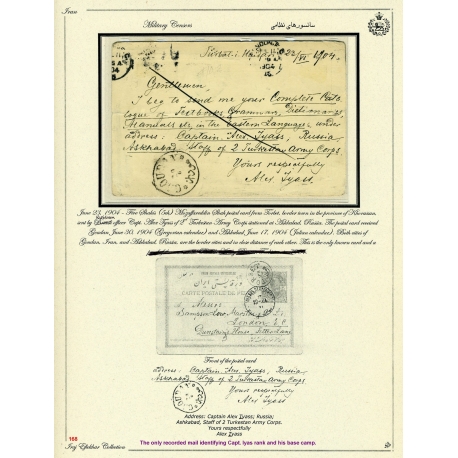 Iran
Military Censors
سانسورهای نظامی
Turbat-i-Haidari 23/VI 1904.
Gentlemen,
I beg to send me your Complete Cata-
logue of Textbooks, Grammars, Dictionaries,
Manuals etc in the Eastern Languages, under
adress: Captain Alex Iyass, Russia,
Askhabad, Staff of 2 Turkestan Army Corps.
Yours respectfully
Alex Iyass
June 23, 1904 - Five Shahis (5ch) Mozaffareddin Shah postal card from Turbat, border town in the province of Khorassan,
sent by officer Capt. Alex Iyas of 2nd Turkestan Army Corps stationed at Ashkabad, Russia. The postal card received
Goudan, June 30, 1904 (Gregorian calendar) and Ashkabad, June 17, 1904 (Julian calendar). Both cities of
Goudan, Iran, and Ashkabad, Russia, are the border cities and in close distance of each other. This is the only known card and a
CARTE POSTALE DE PERSE
Messrs
Sampson Low, Marston
London E.C.
Dunstan's House, Fetter Lane
Front of the postal card
adress: Captain Alex Iyass, Russia,
Askhabad, Staff of 2 Turkestan Army Corps.
Yours respectfully
Alex Iyass
Address: Captain Alex Iyass; Russia;
Ashkabad, Staff of 2 Turkestan Army Corps.
Yours respectively
Alex Iyass
168
The only recorded mail identifying Capt. Iyas rank and his base camp.
Iraj Eftekhar Collection